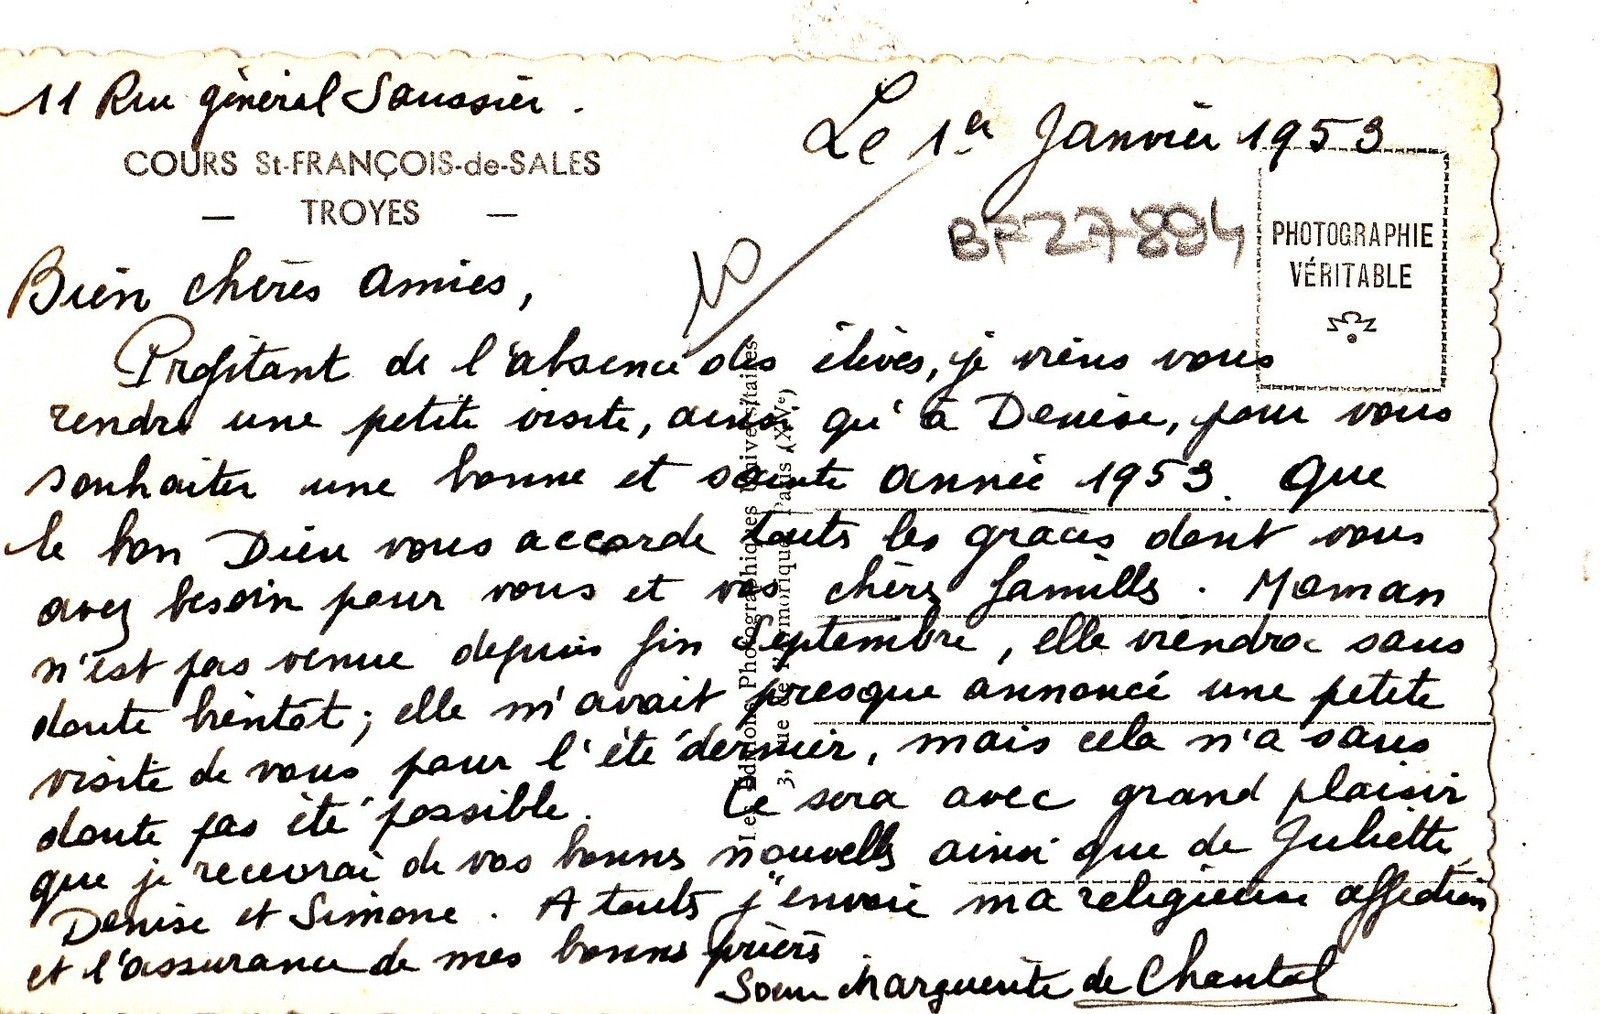 11 Rue général Saussier.
COURS St-FRANÇOIS-de-SALES
— TROYES —
Le 1er Janvier 1953
BF27894
10
PHOTOGRAPHIE
VÉRITABLE
Bien chères amies,
Profitant de l'absence des élèves, je viens vous
rendre une petite visite, ainsi qu'à Denise, pour vous
souhaiter une bonne et sainte année 1953. Que
le bon Dieu vous accorde toutes les grâces dont vous
avez besoin pour vous et vos chères familles. Maman
n'est pas venue depuis fin Septembre, elle viendra sans
doute bientôt; elle m'avait presque annoncé une petite
visite de vous pour l'été dernier, mais cela n'a sans
doute pas été possible. Ce sera avec grand plaisir
que je recevrai de vos bonnes nouvelles ainsi que de Juliette,
Denise et Simone. A toutes j'envoie ma religieuse affection
et l'assurance de mes bonnes prières
Soeur Marguerite de Chantal
Les Éditions Photographiques Universitaires
3, rue de l'Armorique, Paris (XVe)